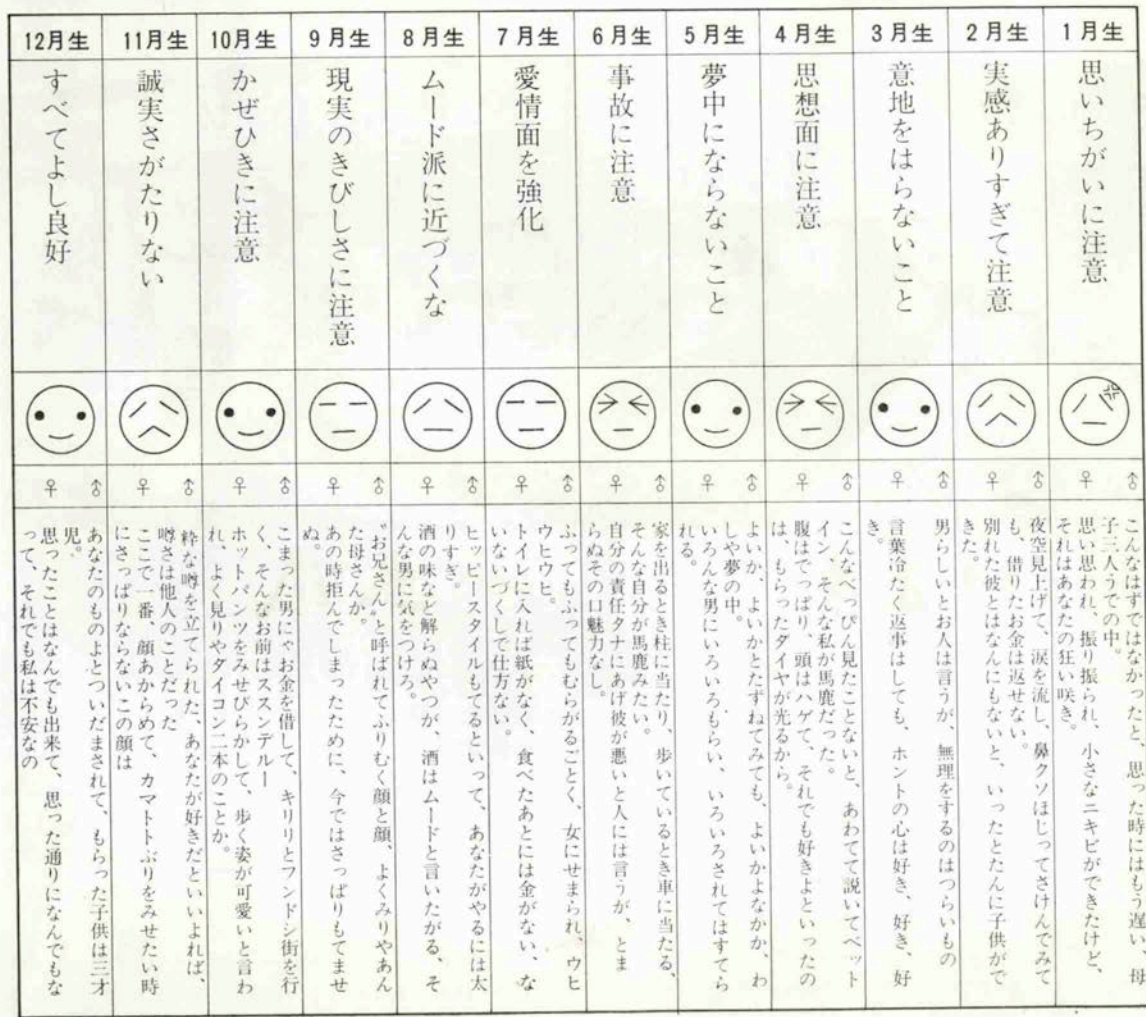 1月生
思いちがいに注意
♂
♀
こんなはずではなかったと、思った時にはもう遅い、母
子三人うでの中。
思い思われ、振り振られ、小さなニキビができたけど、
それはあなたの狂い咲き。
2月生
実感ありすぎて注意
♂
♀
夜空見上げて、涙を流し、鼻クソほじってさけんでみて
も、借りたお金は返せない。
別れた彼とはなんにもないと、いったとたんに子供がで
きた。
3月生
意地をはらないこと
♂
♀
男らしいとお人は言うが、無理をするのはつらいもの
言葉冷たく返事はしても、ホントの心は好き、好き、好
き。
4月生
思想面に注意
♂
♀
こんなべっぴん見たことないと、あわてて説いてベット
イン、そんな私が馬鹿だった。
腹はでっぱり、頭はハゲて、それでも好きよといったの
は、もらったダイヤが光るから。
5月生
夢中にならないこと
♂
♀
よいか、よいかとたずねてみても、よいかよなかか、わ
しゃ夢の中。
いろんな男にいろいろもらい、いろいろされてはすてら
れる。
6月生
事故に注意
♂
♀
家を出るとき柱に当たり、歩いているとき車に当たる、
そんな自分が馬鹿みたい。
自分の責任タナにあげ彼が悪いと人には言うが、とま
らぬその口魅力なし。
7月生
愛情面を強化
♂
♀
ふってもふってもむらがるごとく、女にせまられ、ウヒ
ウヒウヒ。
トイレに入れば紙がなく、食べたあとには金がない、な
いないづくしで仕方ない。
8月生
ムード派に近づくな
♂
♀
ヒッピースタイルもてるといって、あなたがやるには太
りすぎ。
酒の味など解らぬやつが、酒はムードと言いたがる、そ
んな男に気をつけろ。
9月生
現実のきびしさに注意
♂
♀
〝お兄さん〟と呼ばれてふりむく顔と顔、よくみりやあん
た母さんか。
あの時拒んでしまったために、今ではさっぱりもてませ
ぬ。
10月生
かぜひきに注意
♂
♀
こまった男にゃお金を借して、キリリとフンドシ街を行
く、そんなお前はススンデルー
ホットパンツをみせびらかして、歩く姿が可愛いと言わ
れ、よく見りやダイコン二本のことか。
11月生
誠実さがたりない
♂
♀
粋な噂を立てられた、あなたが好きだといいよれば、
噂さは他人のことだった
ここで一番、顔あからめて、カマトトぶりをみせたい時
にさっぱりならないこの顔は
12月生
すべてよし良好
♂
♀
あなたのものよとついだまされて、もらった子供は三才
児。
思ったことはなんでも出来て、思った通りになんでもな
って、それでも私は不安なの